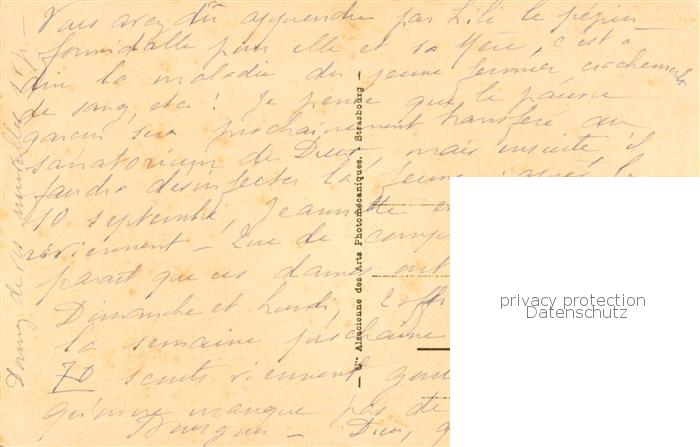 Vous avez dû apprendre par Lili le pépin
formidable pour elle et sa Mère, c'est à
dire la maladie du jeune fermier crachements
de sang, etc! Je pense que le pauvre
garçon sera prochainement transféré au
sanatorium de mais ensuite il
faudra désinfecter la ferme. après le
10 septembre, Jeannette e
reviennent - Que de comp
paraît que ces dames ont
Dimanche et lundi,
la semaine prochaine
70 scouts viennent
qu'on ne manque pas de

Donnez de vos nouvelles s.v.p. -
— Cie Alsacienne des Arts Photomécaniques. - Strasbourg —
privacy protection
Datenschutz